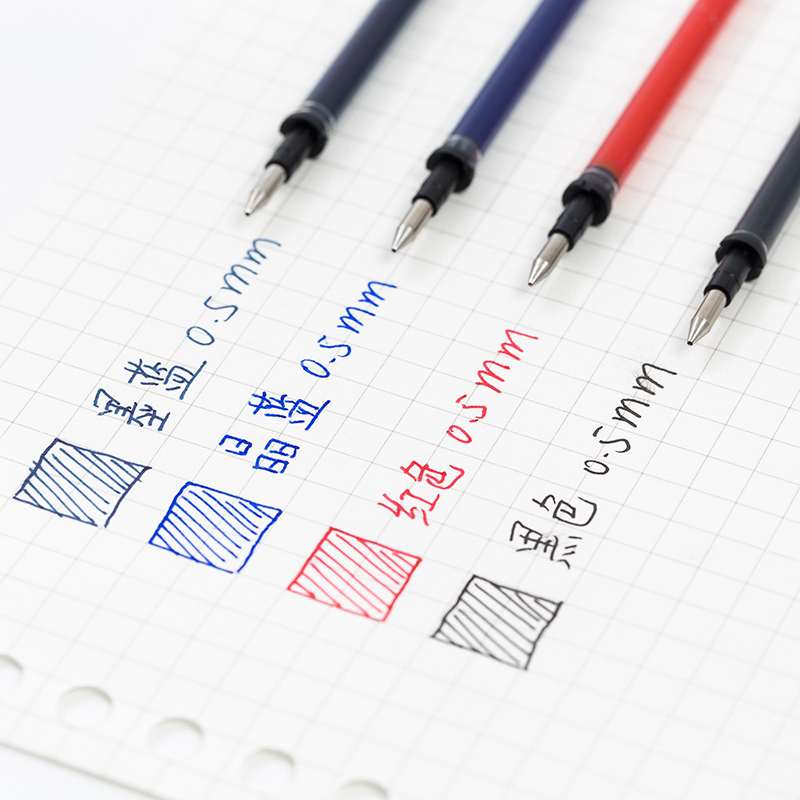 墨蓝 0.5mm
晶蓝 0.5mm
红色 0.5mm
黑色 0.5mm